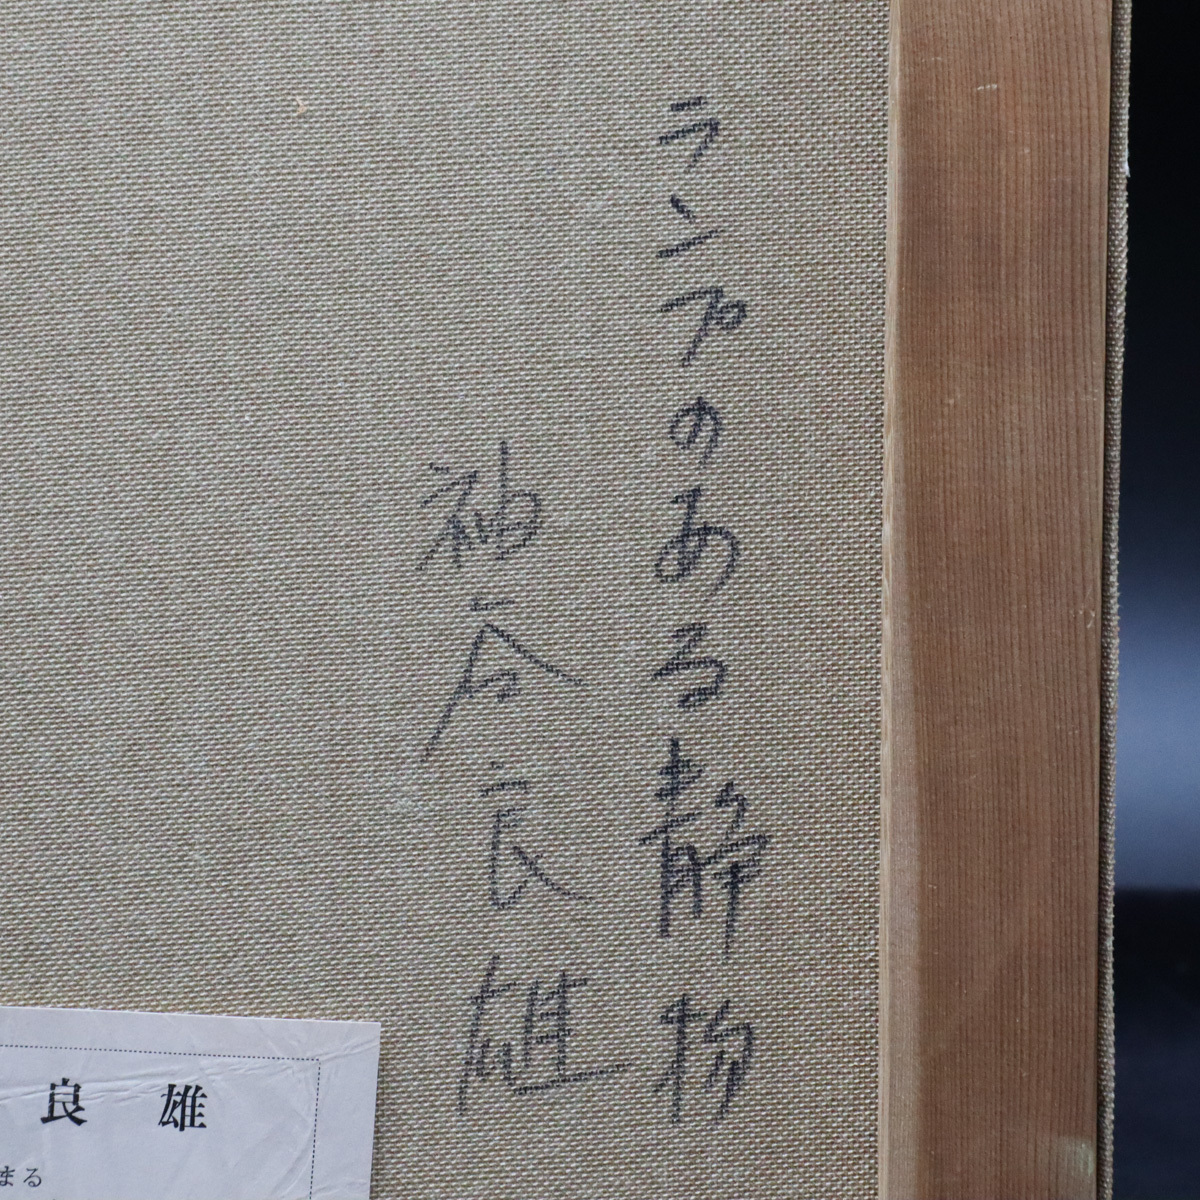 ランプのある静物
袖合良雄
良雄
まる